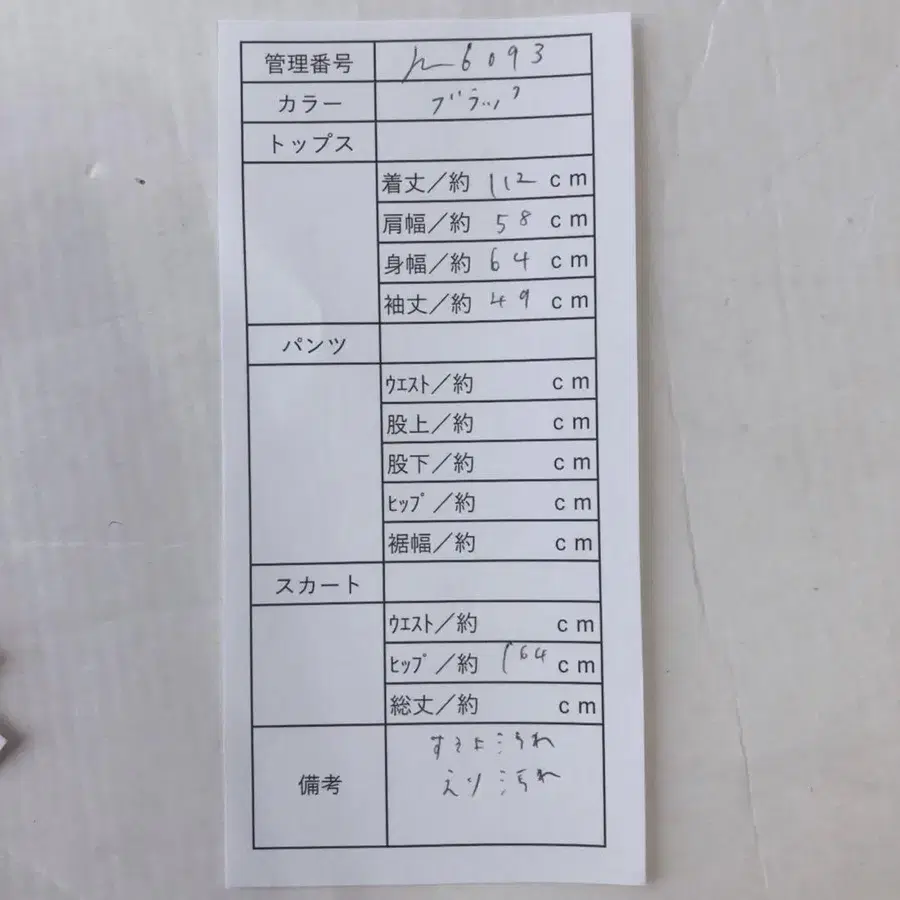 管理番号 h6093
カラー ブラック
トップス
着丈／約 112 cm
肩幅／約 58 cm
身幅／約 64 cm
袖丈／約 49 cm
パンツ
ｳｴｽﾄ／約 cm
股上／約 cm
股下／約 cm
ﾋｯﾌﾟ／約 cm
裾幅／約 cm
スカート
ｳｴｽﾄ／約 cm
ﾋｯﾌﾟ／約 164 cm
総丈／約 cm
汚れ
備考 えり汚れ